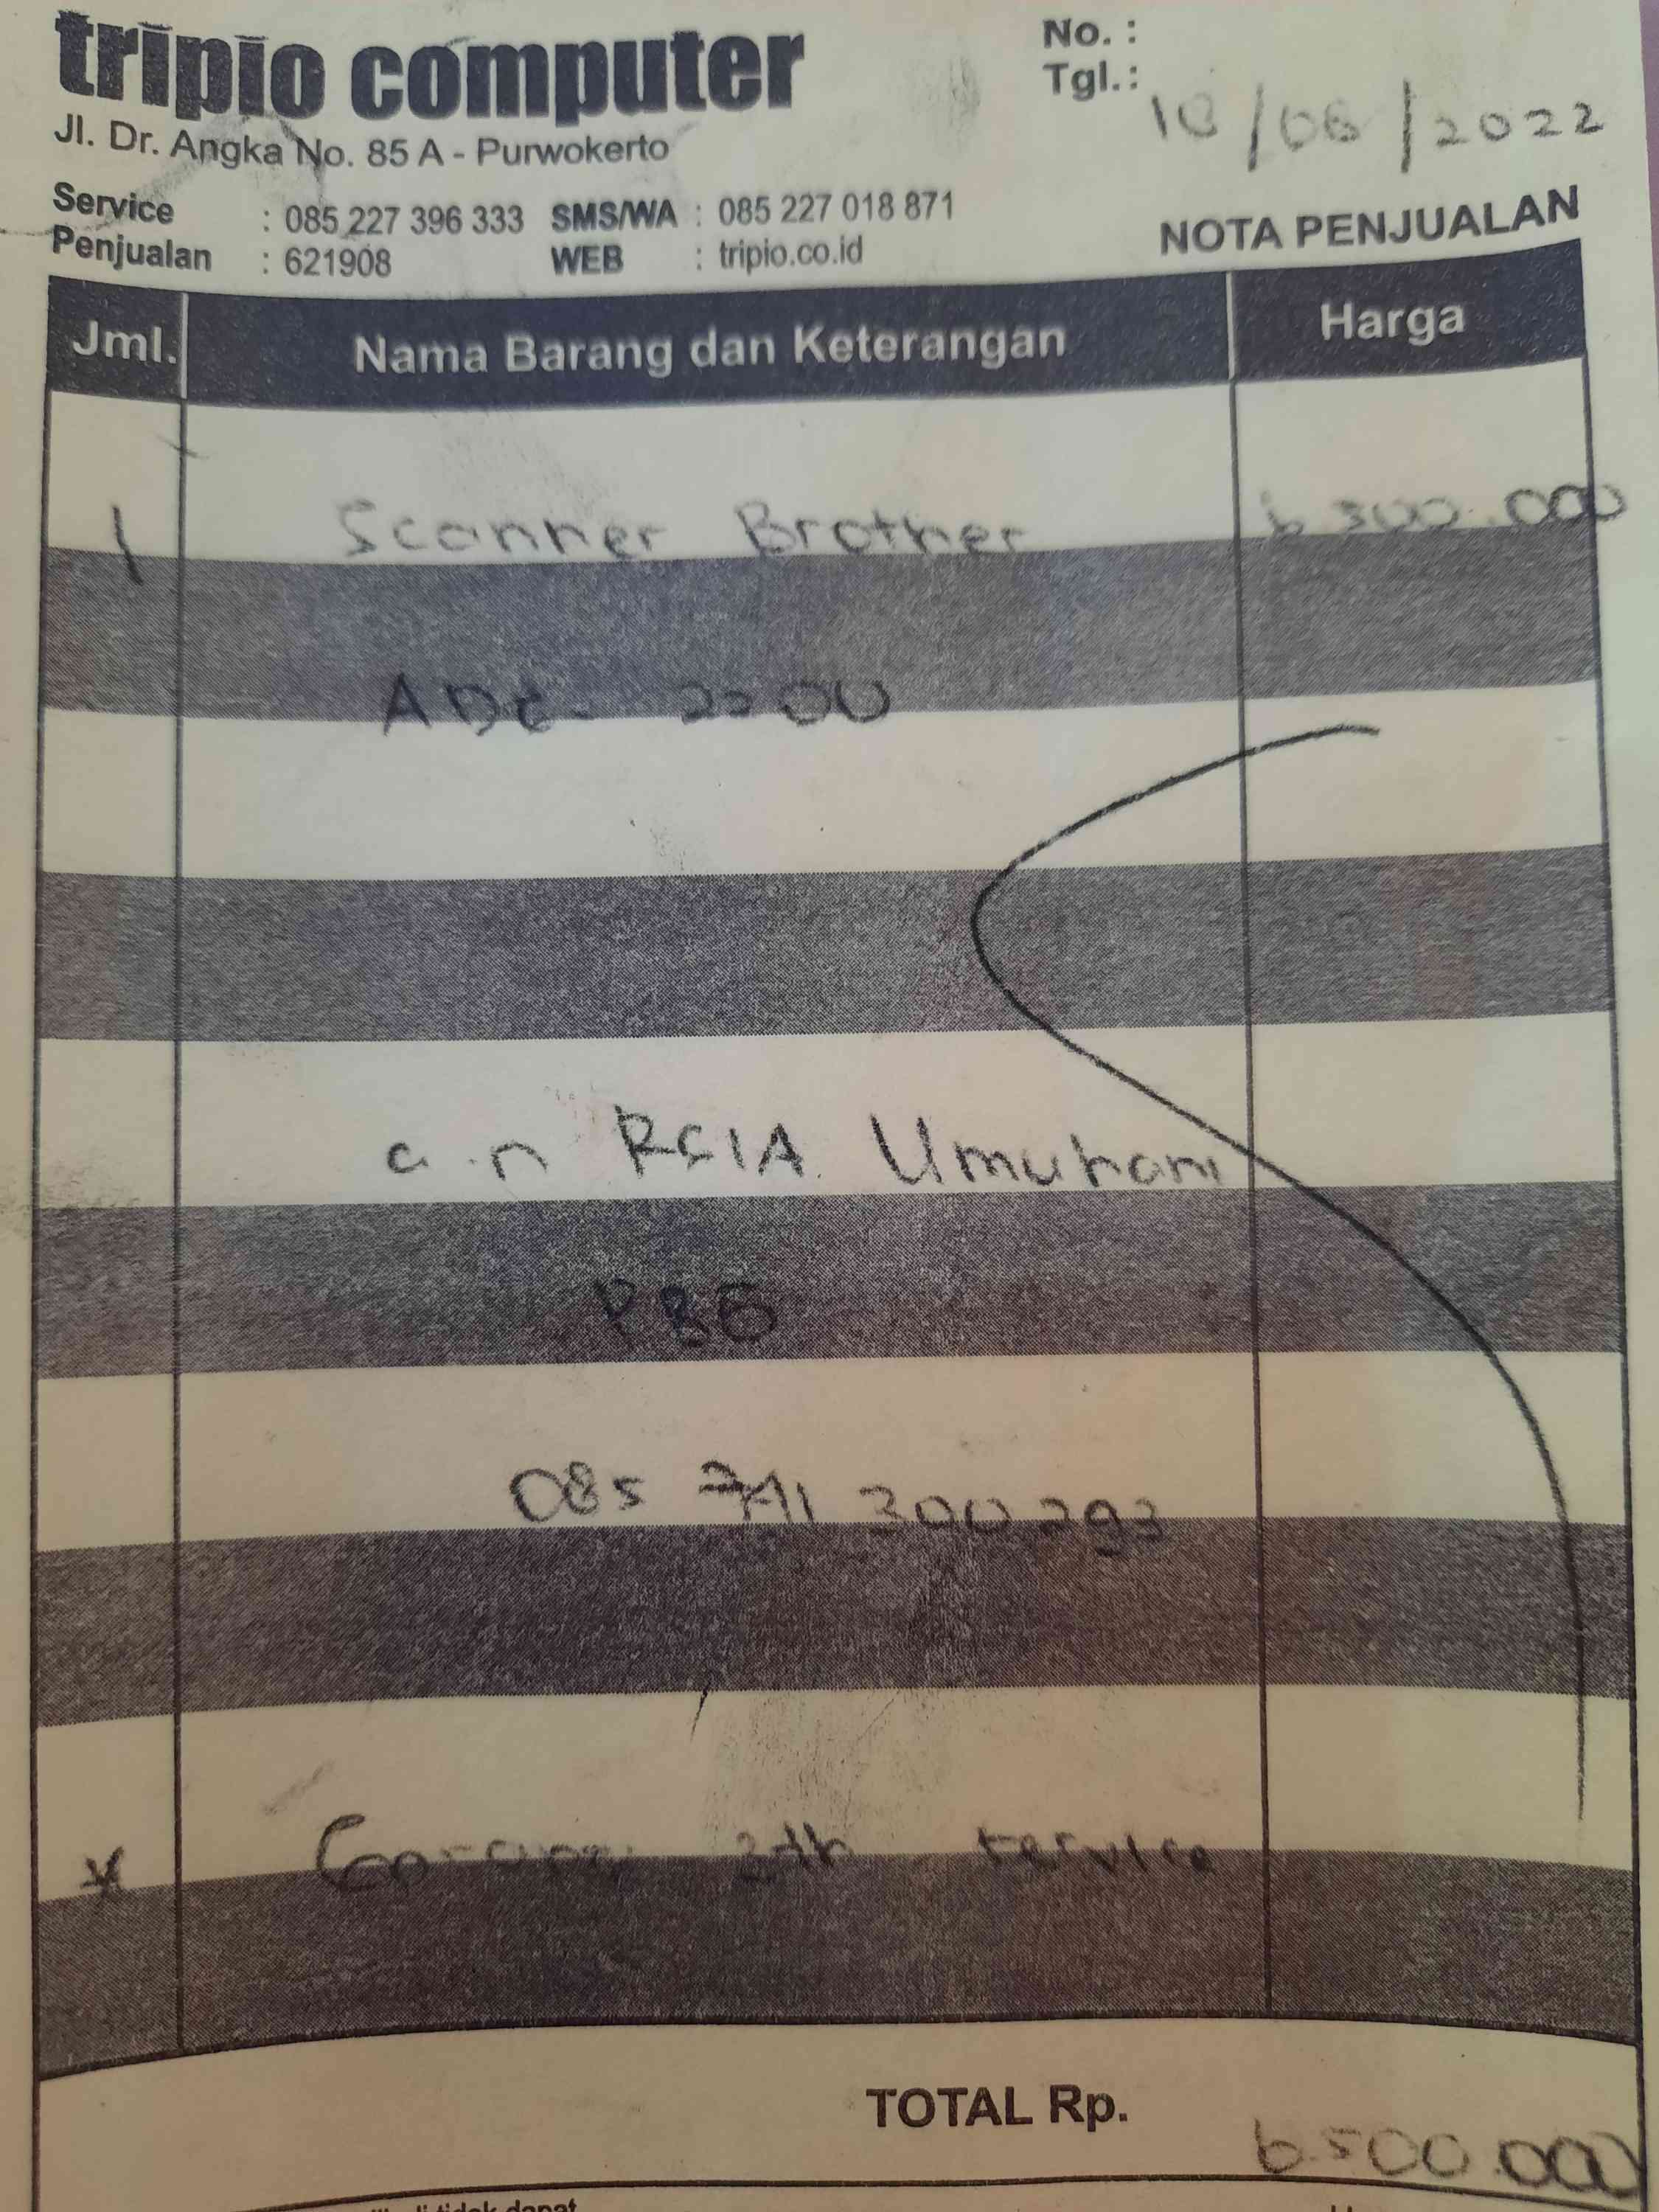 tripio computer
Jl. Dr. Angka No. 85 A - Purwokerto
Service : 085 227 396 333 SMS/WA : 085 227 018 871
Penjualan : 621908 WEB : tripio.co.id
No. :
Tgl. : 10/06/2022
NOTA PENJUALAN
Jml. Nama Barang dan Keterangan Harga
1 Scanner Brother
ADS 2200
a.n RSIA Umuhani
PBG
085 741 300 293
* Garansi 3th service
TOTAL Rp. 6.500.000
tidak dapat